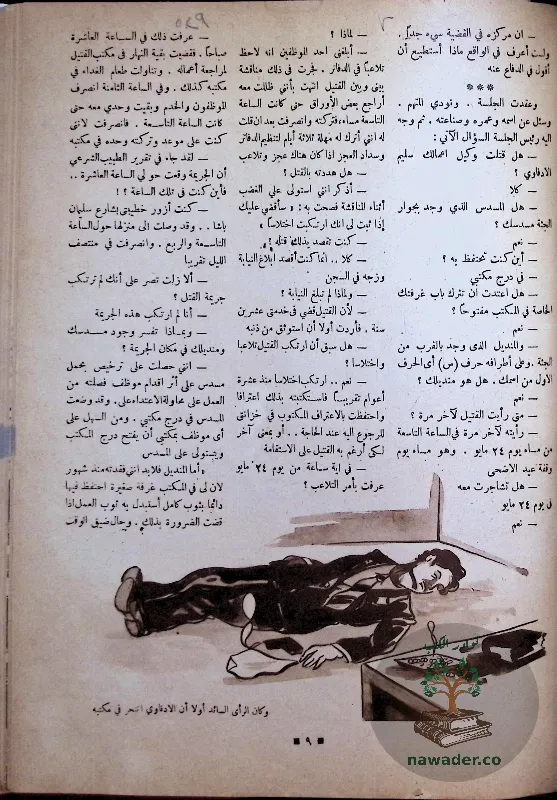 — ان مركزه في القضية سيء جداً .
ولست أعرف في الواقع ماذا أستطيع أن
أقول في الدفاع عنه
***
وعقدت الجلسة . . ونودي المتهم .
وسئل عن اسمه وعمره وصناعته . ثم وجه
اليه رئيس الجلسة السؤال الآتي :
— هل قتلت وكيل أعمالك سليم
الادفاوي ؟
— كلا
— هل المسدس الذي وجد بجوار
الجثة مسدسك ؟
— نعم
— أين كنت تحتفظ به ؟
— في درج مكتبي
— هل اعتدت أن تترك باب غرفتك
الخاصة في المكتب مفتوحاً ؟
— نعم
— والمنديل الذى وجد بالقرب من
الجثة . وعلى أطرافه حرف (س) أى الحرف
الأول من اسمك . هل هو منديلك ؟
— نعم
— متى رأيت القتيل لآخر مرة ؟
— رأيته لآخر مرة في الساعة التاسعة
من مساء يوم ٢٤ مايو . وهو مساء يوم
وقفة عيد الاضحى
— هل تشاجرت معه
في يوم ٢٤ مايو
— نعم
— لماذا ؟
— أبلغني احد الموظفين انه لاحظ
تلاعباً في الدفاتر . فجرت في ذلك مناقشة
بيني وبين القتيل انتهت بأنني ظللت معه
أراجع بعض الأوراق حتى كانت الساعة
التاسعة مساء فتركته وانصرفت بعد ان قلت
له انني أترك له مهلة ثلاثة أيام لتنظيم الدفاتر
وسداد العجز اذا كان هناك عجز وتلاعب
— هل هددته بالقتل ؟
— أذكر انني استولى علي الغضب
أثناء المناقشة فصحت به : « سأقضي عليك
إذا ثبت لى انك ارتكبت اختلاساً »
— كنت تقصد بذلك قتله ؟
— كلا .. انما كنت أقصد إبلاغ النيابة
وزجه في السجن
— ولماذا لم تبلغ النيابة ؟
— لأن القتيل قضى في خدمتي عشرين
سنة . فأردت أولا أن استوثق من ذنبه
— هل سبق أن ارتكب القتيل تلاعبا
واختلاسا ؟
— نعم .. ارتكب اختلاسا منذ عشرة
أعوام تقريباً فاستكتبته بذلك اعترافا
واحتفظت بالاعتراف المكتوب في خزانتي
للرجوع اليه عند الحاجة . . أو بمعنى آخر
لكى أرغمه على الاستقامة
— في اية ساعة من يوم ٢٤ مايو
عرفت بأمر التلاعب ؟
— عرفت ذلك في الساعة العاشرة
صباحاً . فقضيت بقية النهار في مكتب القتيل
لمراجعة أعماله . وتناولت طعام الغداء في
مكتبه كذلك . وفي الساعة الثامنة انصرف
الموظفون والخدم وبقيت وحدي معه حتى
كانت الساعة التاسعة . فانصرفت لانني
كنت على موعد وتركته وحده في مكتبه
— لقد جاء في تقرير الطبيب الشرعي
أن الجريمة وقعت حوالي الساعة العاشرة . .
فأين كنت فى تلك الساعة ؟ !
— كنت أزور خطيبتي بشارع سليمان
باشا . . وقد وصلت الى منزلها حول الساعة
التاسعة والربع . وانصرفت في منتصف
الليل تقريبا
— ألا زلت تصر على أنك لم ترتكب
جريمة القتل ؟
— أنا لم ارتكب هذه الجريمة
— وبماذا تفسر وجود مسدسك
ومنديلك في مكان الجريمة ؟
— انني حصلت على ترخيص بحمل
مسدس على أثر اقدام موظف فصلته من
العمل على محاولة الاعتداء على . وقد وضعت
المسدس في درج مكتبي . ومن السهل على
أى موظف بمكتبي أن يفتح درج المكتب
ويستولى على المسدس
« أما المنديل فلا بد انني فقدته منذ شهور
لان لى في المكتب غرفة صغيرة احتفظ فيها
دائماً بثوب كامل أستبدل به ثوب العمل اذا
قضت الضرورة بذلك . وحال ضيق الوقت
وكان الرأى السائد أولا أن الادفاوي انتحر في مكتبه
٩
نوادر الكتب
nawader.co